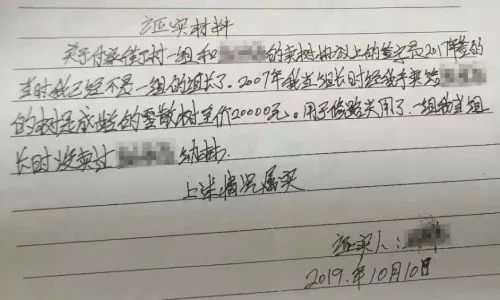 证实材料
关于付菜街村一组和的卖树协议上的签字是2017年签的
当时我已经不是一组的组长了。2007年我当组长时经我手卖给
的树是成材的零散树定价20000元。用于修路关用了.一组我当组
长时没卖过幼林.
上述情况属实
证实人:
2019.年10月10日